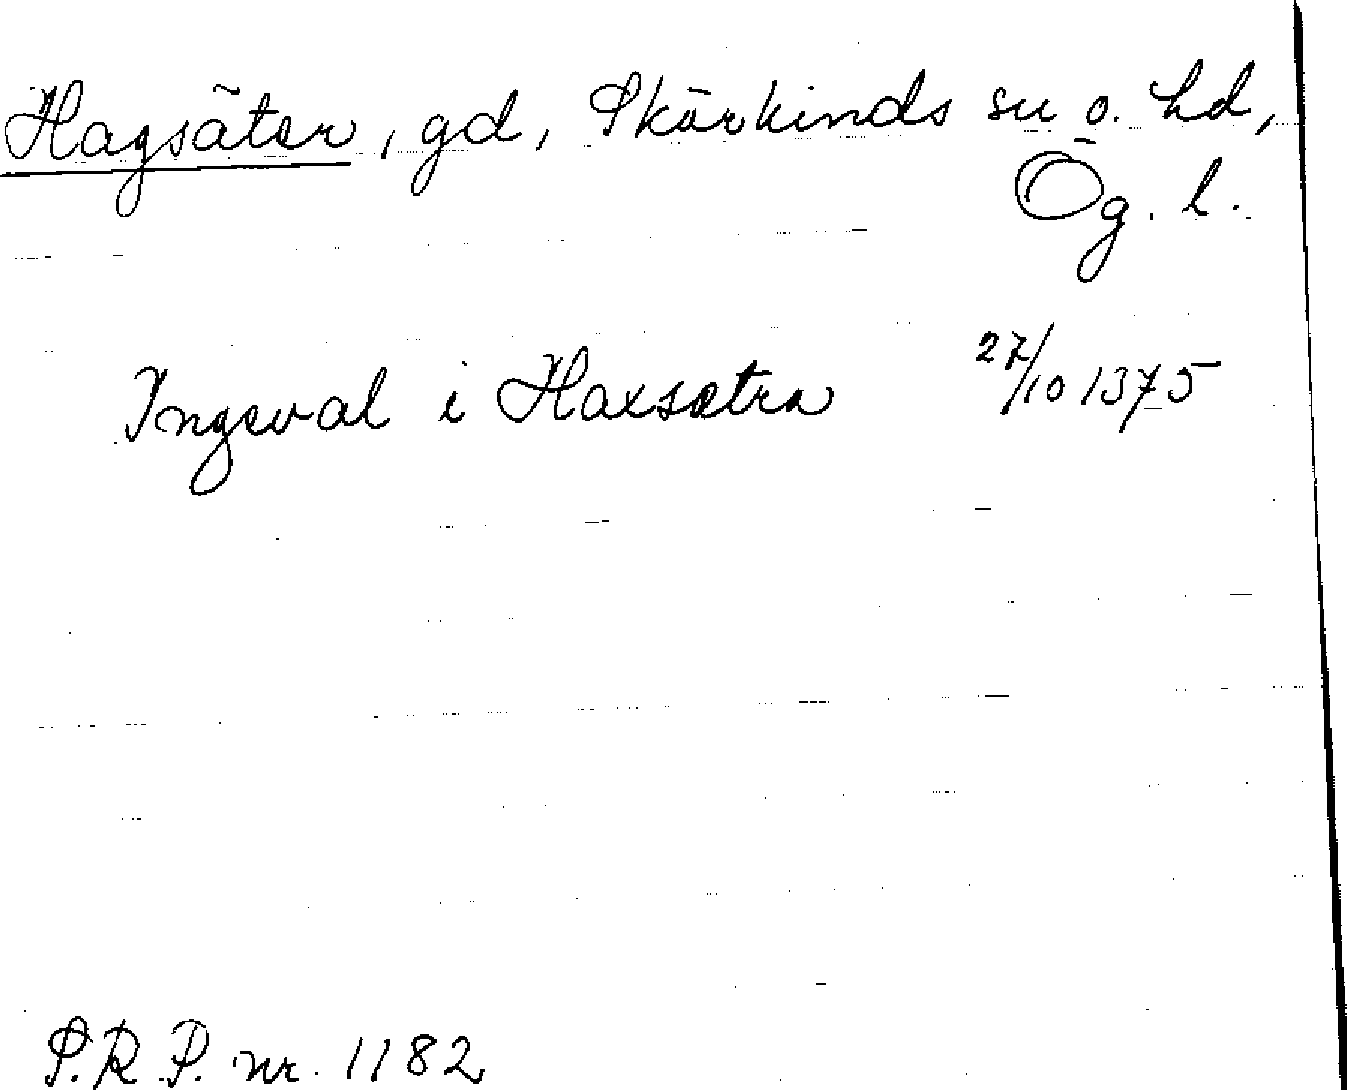 Hagsäter, gd, Skärkinds sn o. hd,
Ög. l.
Ingeval i Haxsætra 27/10 1375
S.R.P. nr. 1182